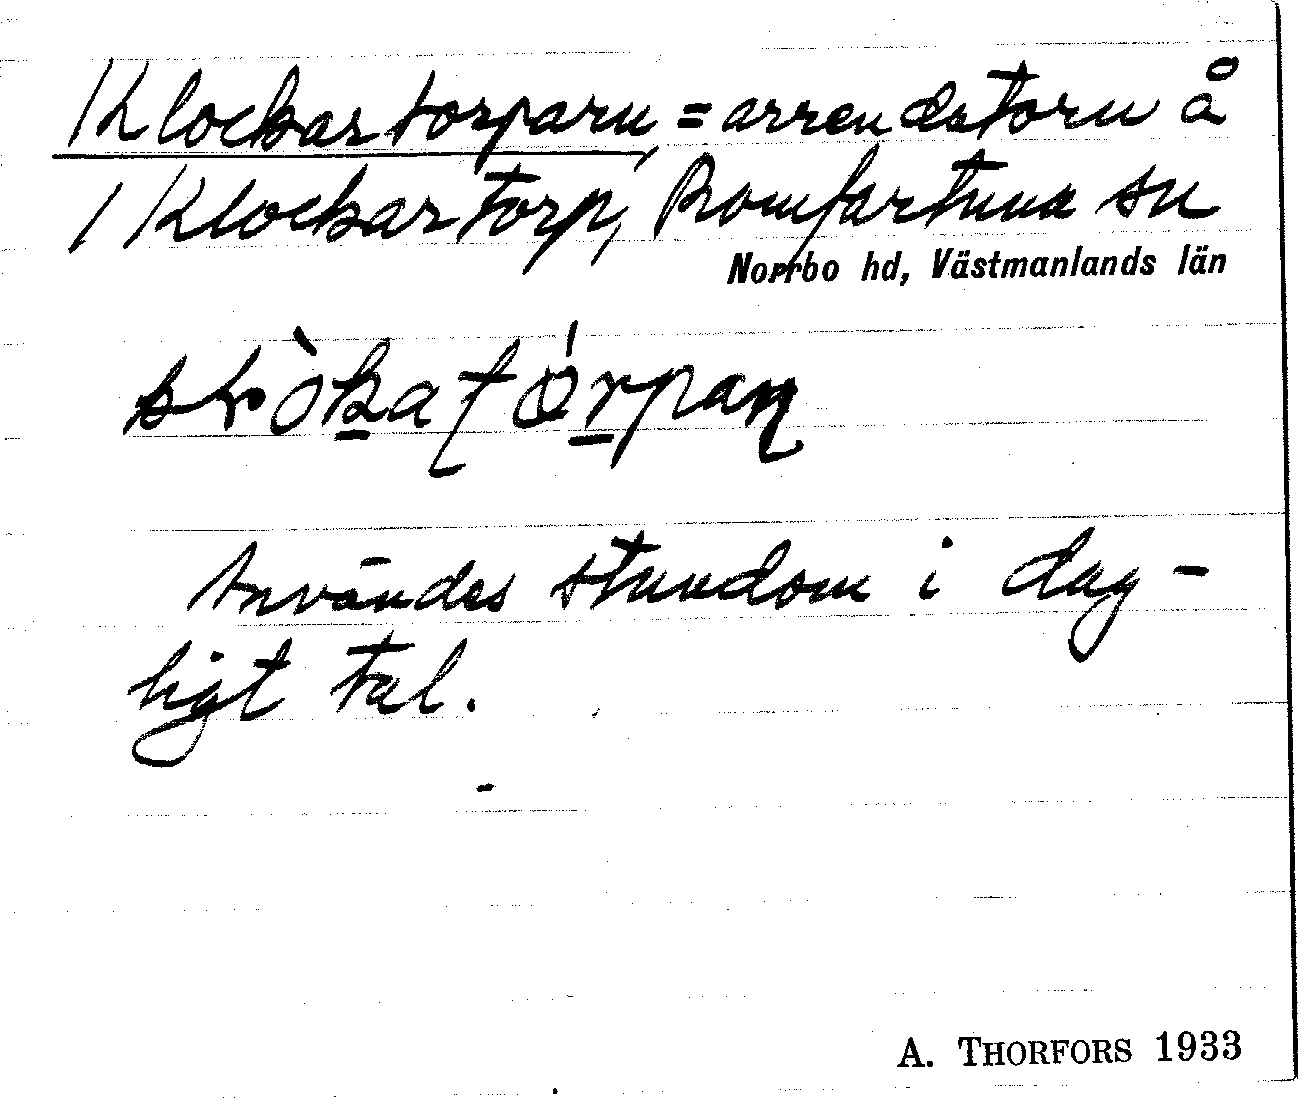 Klockartorparn, = arrendatorn å
/ Klockartorp, Romfartuna sn
Norrbo hd, Västmanlands län
Användes stundom i dag-
ligt tal.
A. THORFORS 1933